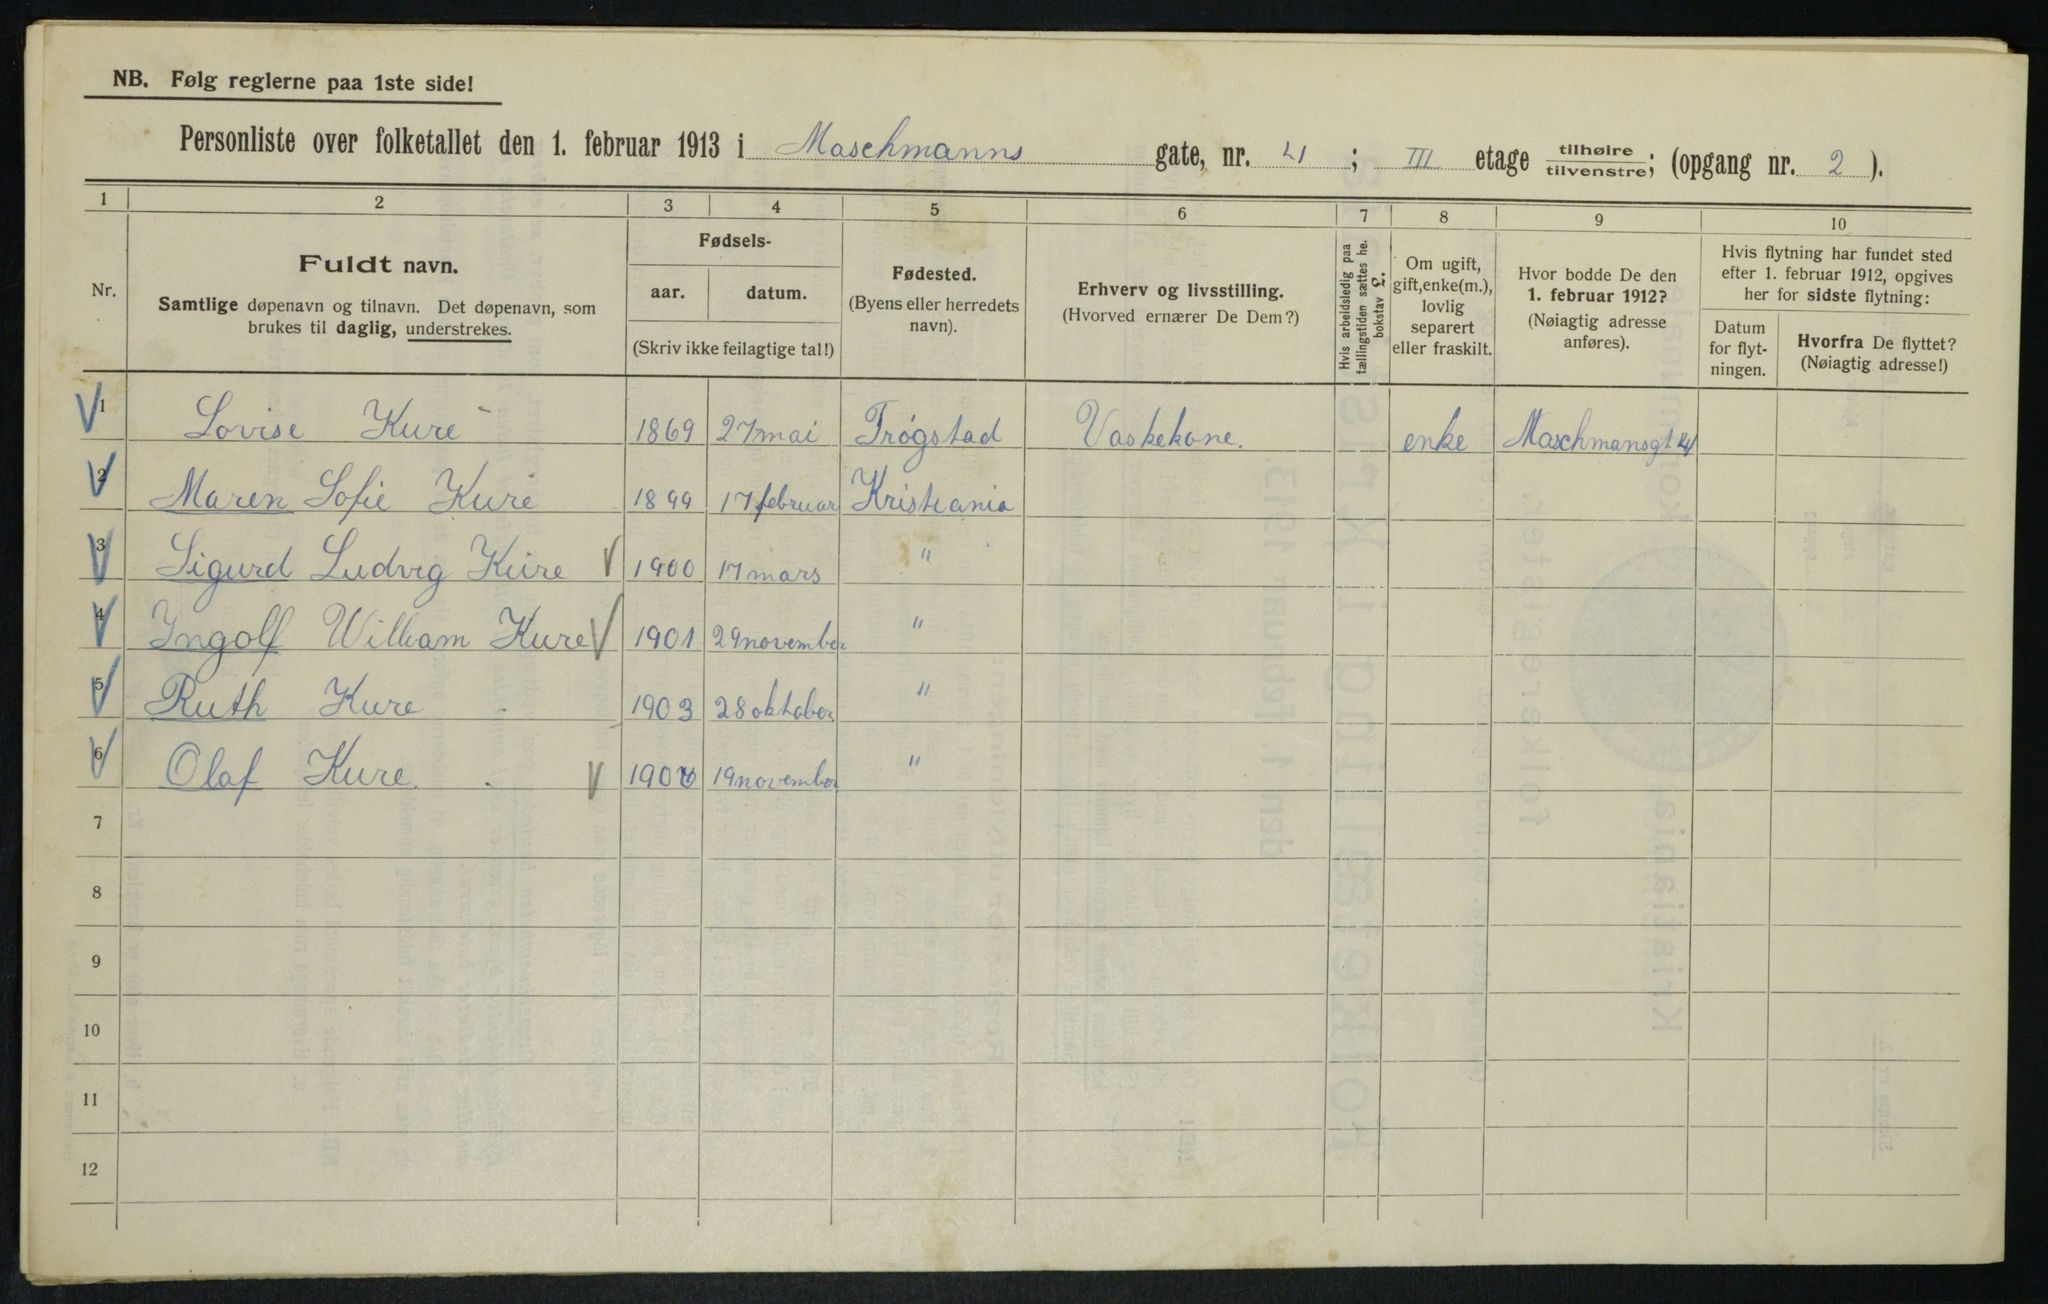 NB. Følg reglerne paa 1ste side!
Personliste over folketallet den 1. februar 1913 i Maschmanns gate, nr. 4; III etage tilhøire/tilvenstre; (opgang nr. 2).
1 2 3 4 5 6 7 8 9 10
Nr.
Fuldt navn.
Samtlige døpenavn og tilnavn. Det døpenavn, som
brukes til daglig, understrekes.
Fødsels-
aar. datum.
(Skriv ikke feilagtige tal!)
Fødested.
(Byens eller herredets
navn).
Erhverv og livsstilling.
(Hvorved ernærer De Dem?)
Hvis arbeidsledig paa
tællingstiden sættes he.
bokstav L.
Om ugift,
gift, enke(m.),
lovlig
separert
eller fraskilt.
Hvor bodde De den
1. februar 1912?
(Nøiagtig adresse
anføres).
Hvis flytning har fundet sted
efter 1. februar 1912, opgives
her for sidste flytning:
Datum
for flyt-
ningen.
Hvorfra De flyttet?
(Nøiagtig adresse!)
1 Lovise Kure 1869 27 mai Trøgstad Vaskekone. enke Maschmansgt 4
2 Maren Sofie Kure 1899 17 februar Kristiania
3 Sigurd Ludvig Kure 1900 17 mars "
4 Ingolf William Kure 1901 29 november "
5 Ruth Kure 1903 28 oktober "
6 Olaf Kure. 19 november "
7
8
9
10
11
12